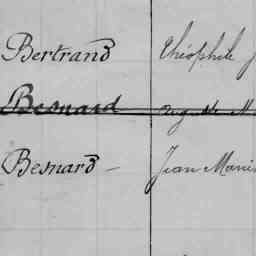 Bertrand Théophile J
Besnard Auguste M
Besnard - Jean Marie